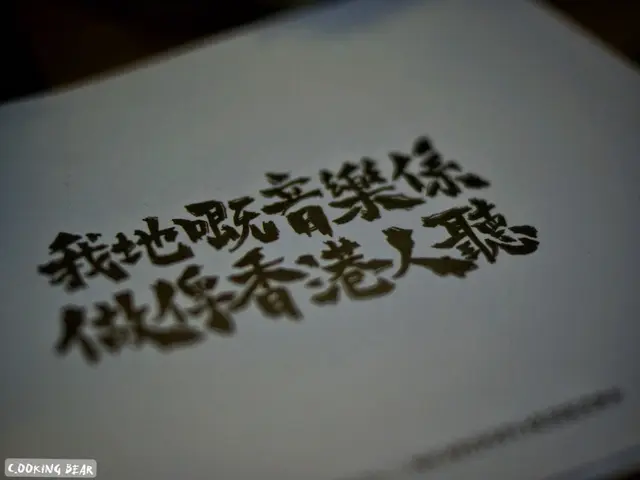 我地嘅音樂係
做俾香港人聽
COOKING BEAR